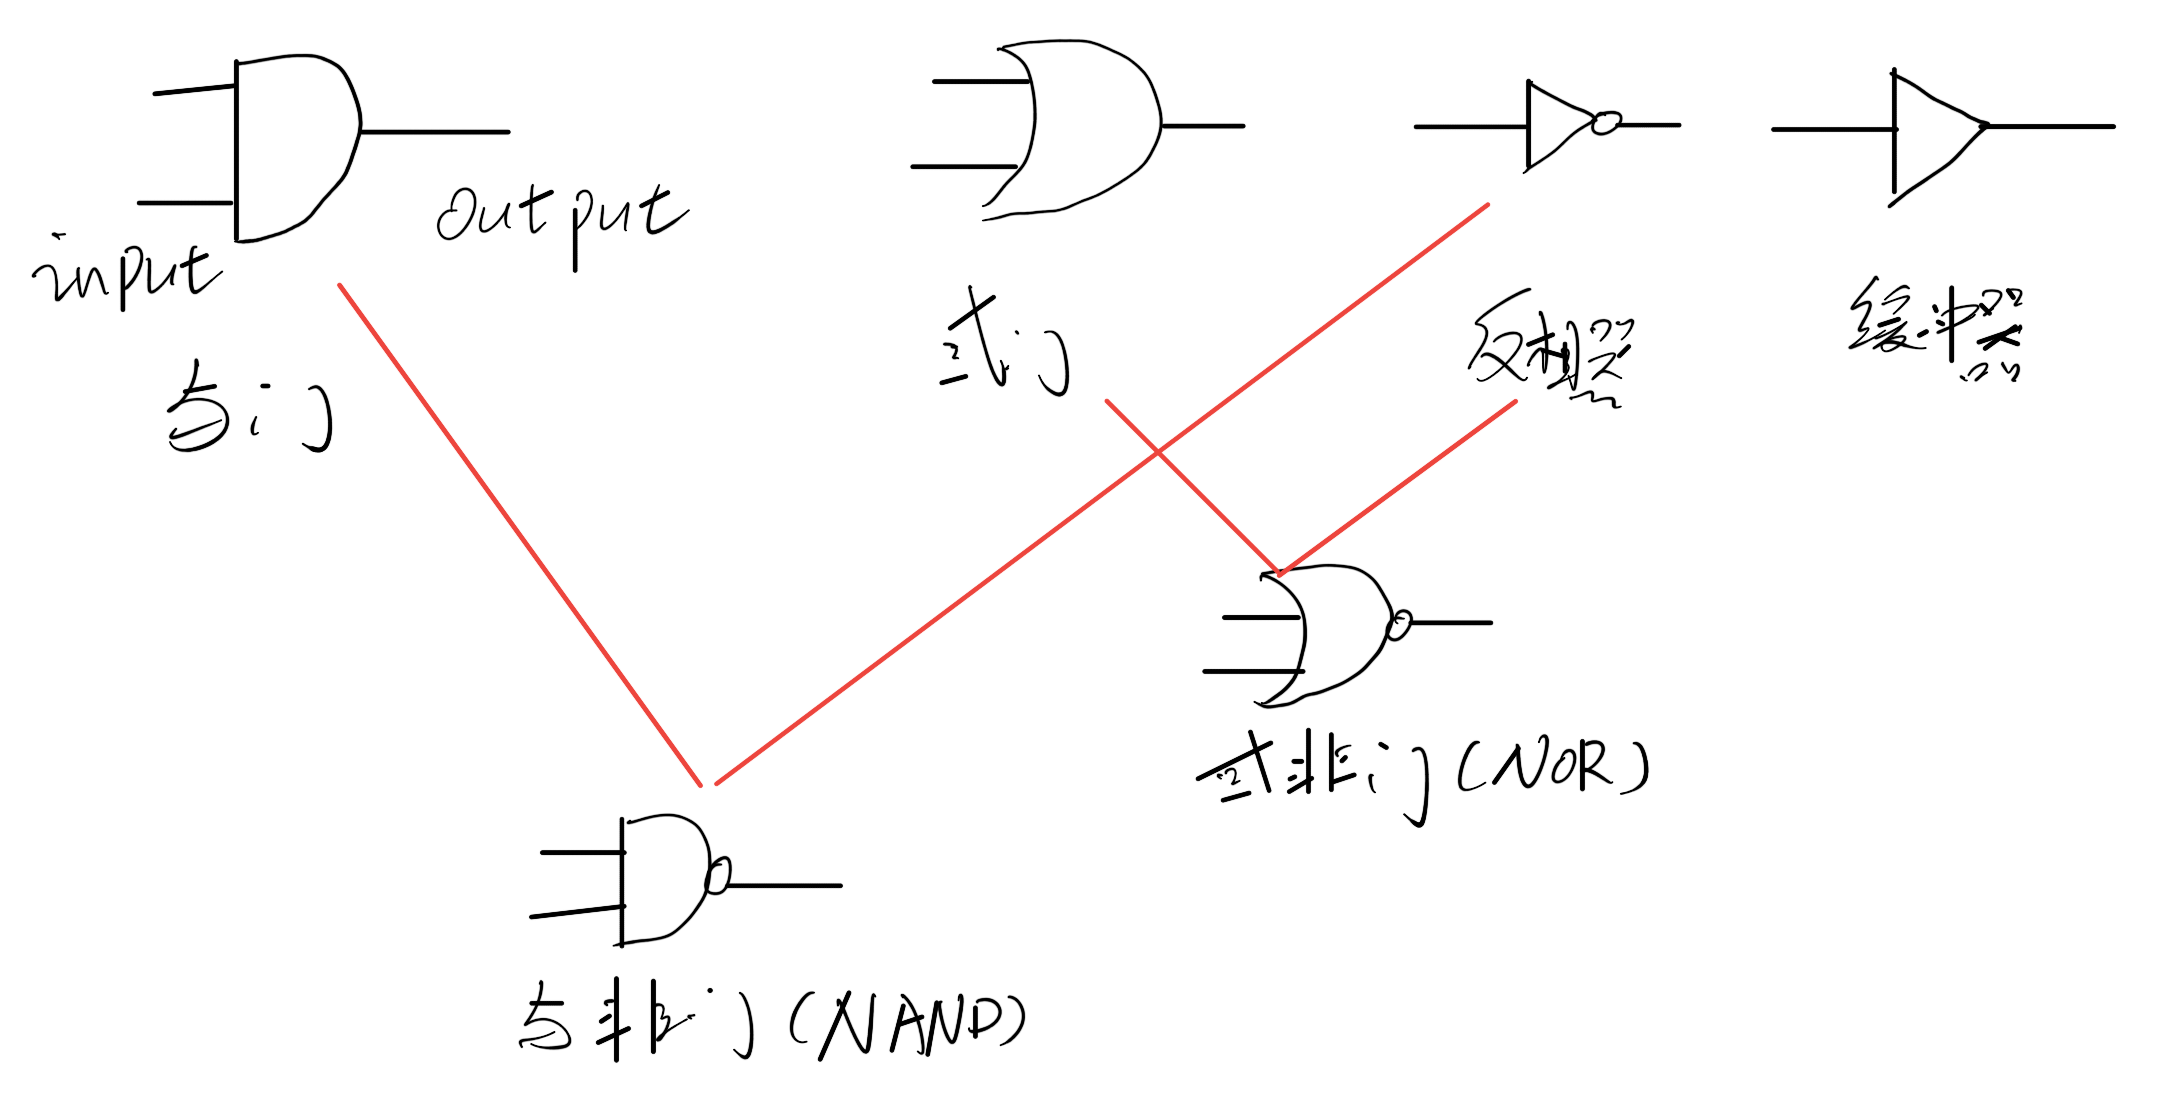 input
output
与门
或门
反相器
缓冲器
或非门(NOR)
与非门(NAND)